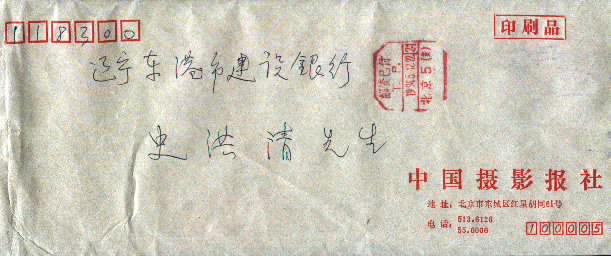 118300
印刷品
辽宁东港市建设銀行
邮资已付
北京5(支)
史洪清先生
中国摄影报社
地址:北京市东城区红星胡同61号
电话:513.6126
55.0006
100005